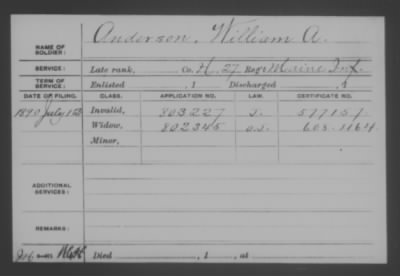 NAME OF SOLDIER: Anderson, William A.
SERVICE: Late rank, Co. H, 27 Reg't Maine Inf.
TERM OF SERVICE: Enlisted , 1 Discharged , 1
DATE OF FILING. CLASS. APPLICATION NO. LAW. CERTIFICATE NO.
1890 July Invalid, 803227 J. 577157
Widow, 802345 603.1164
Minor,
ADDITIONAL SERVICES:
REMARKS:
Died , 1 , at